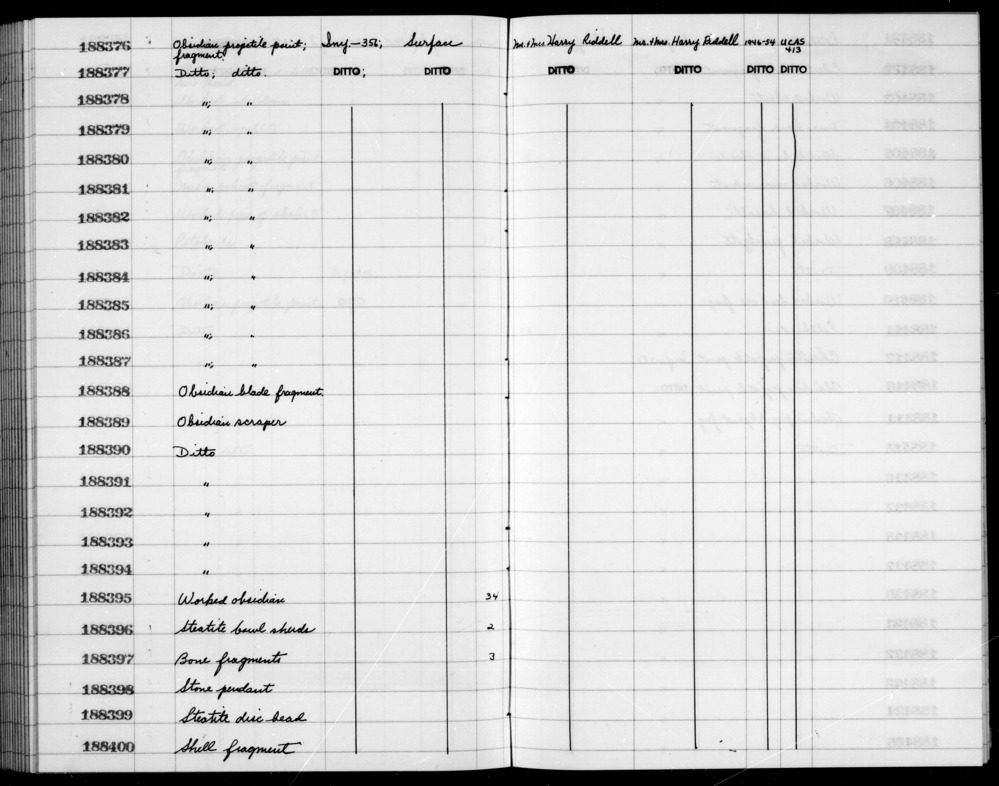 188376 Obsidian projectile point; Iny.-356; Surface Mr. & Mrs. Harry Riddell Mr. & Mrs. Harry Riddell 1946-54 UCAS
fragment. 413
188377 Ditto; ditto. DITTO; DITTO DITTO DITTO DITTO DITTO
188378 "; "
188379 "; "
188380 "; "
188381 "; "
188382 "; "
188383 "; "
188384 "; "
188385 "; "
188386 "; "
188387 "; "
188388 Obsidian blade fragment.
188389 Obsidian scraper
188390 Ditto
188391 "
188392 "
188393 "
188394 "
188395 Worked obsidian 34
188396 Steatite bowl sherds 2
188397 Bone fragments 3
188398 Stone pendant
188399 Steatite disc bead
188400 Shell fragment